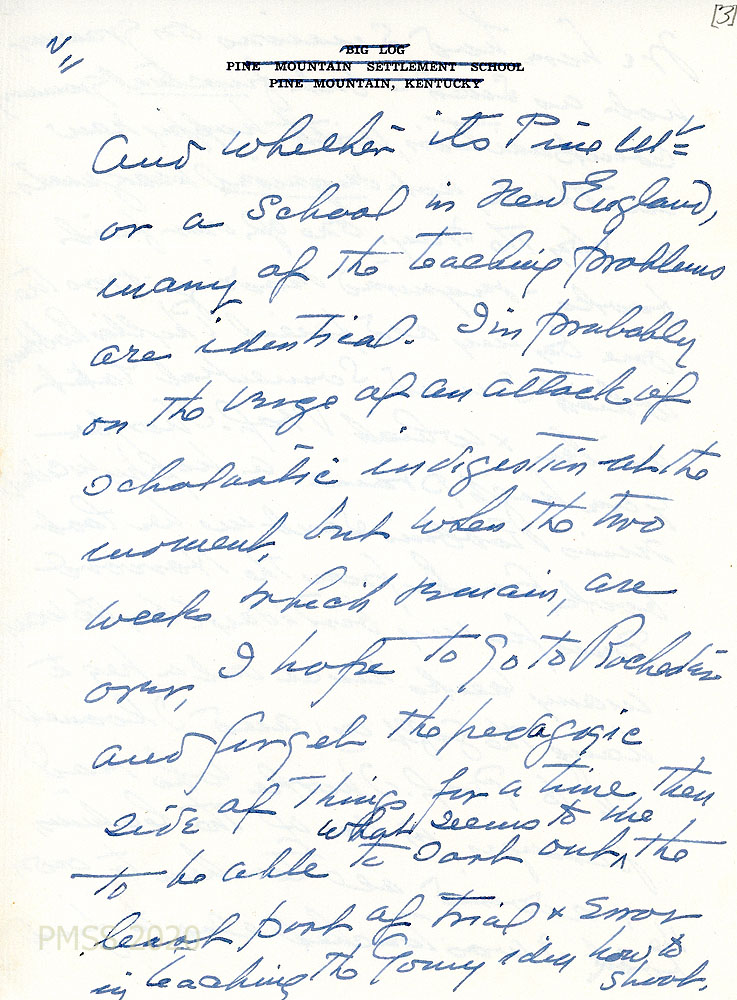 [3]
V
BIG LOG
PINE MOUNTAIN SETTLEMENT SCHOOL
PINE MOUNTAIN, KENTUCKY
and whether its Pine Mt
or a school in New England,
many of the teaching problems
are identical. I'm probably
on the verge of an attack of
scholastic indigestion at the
moment, but when the two
weeks which remain, are
over, I hope to go to
and forget the pedagogic
side of things for a time, then
what seems to me
to be able to sort out ^ the
best part of trial & error
in teaching the young idea how to
shoot.
PMSS 2020